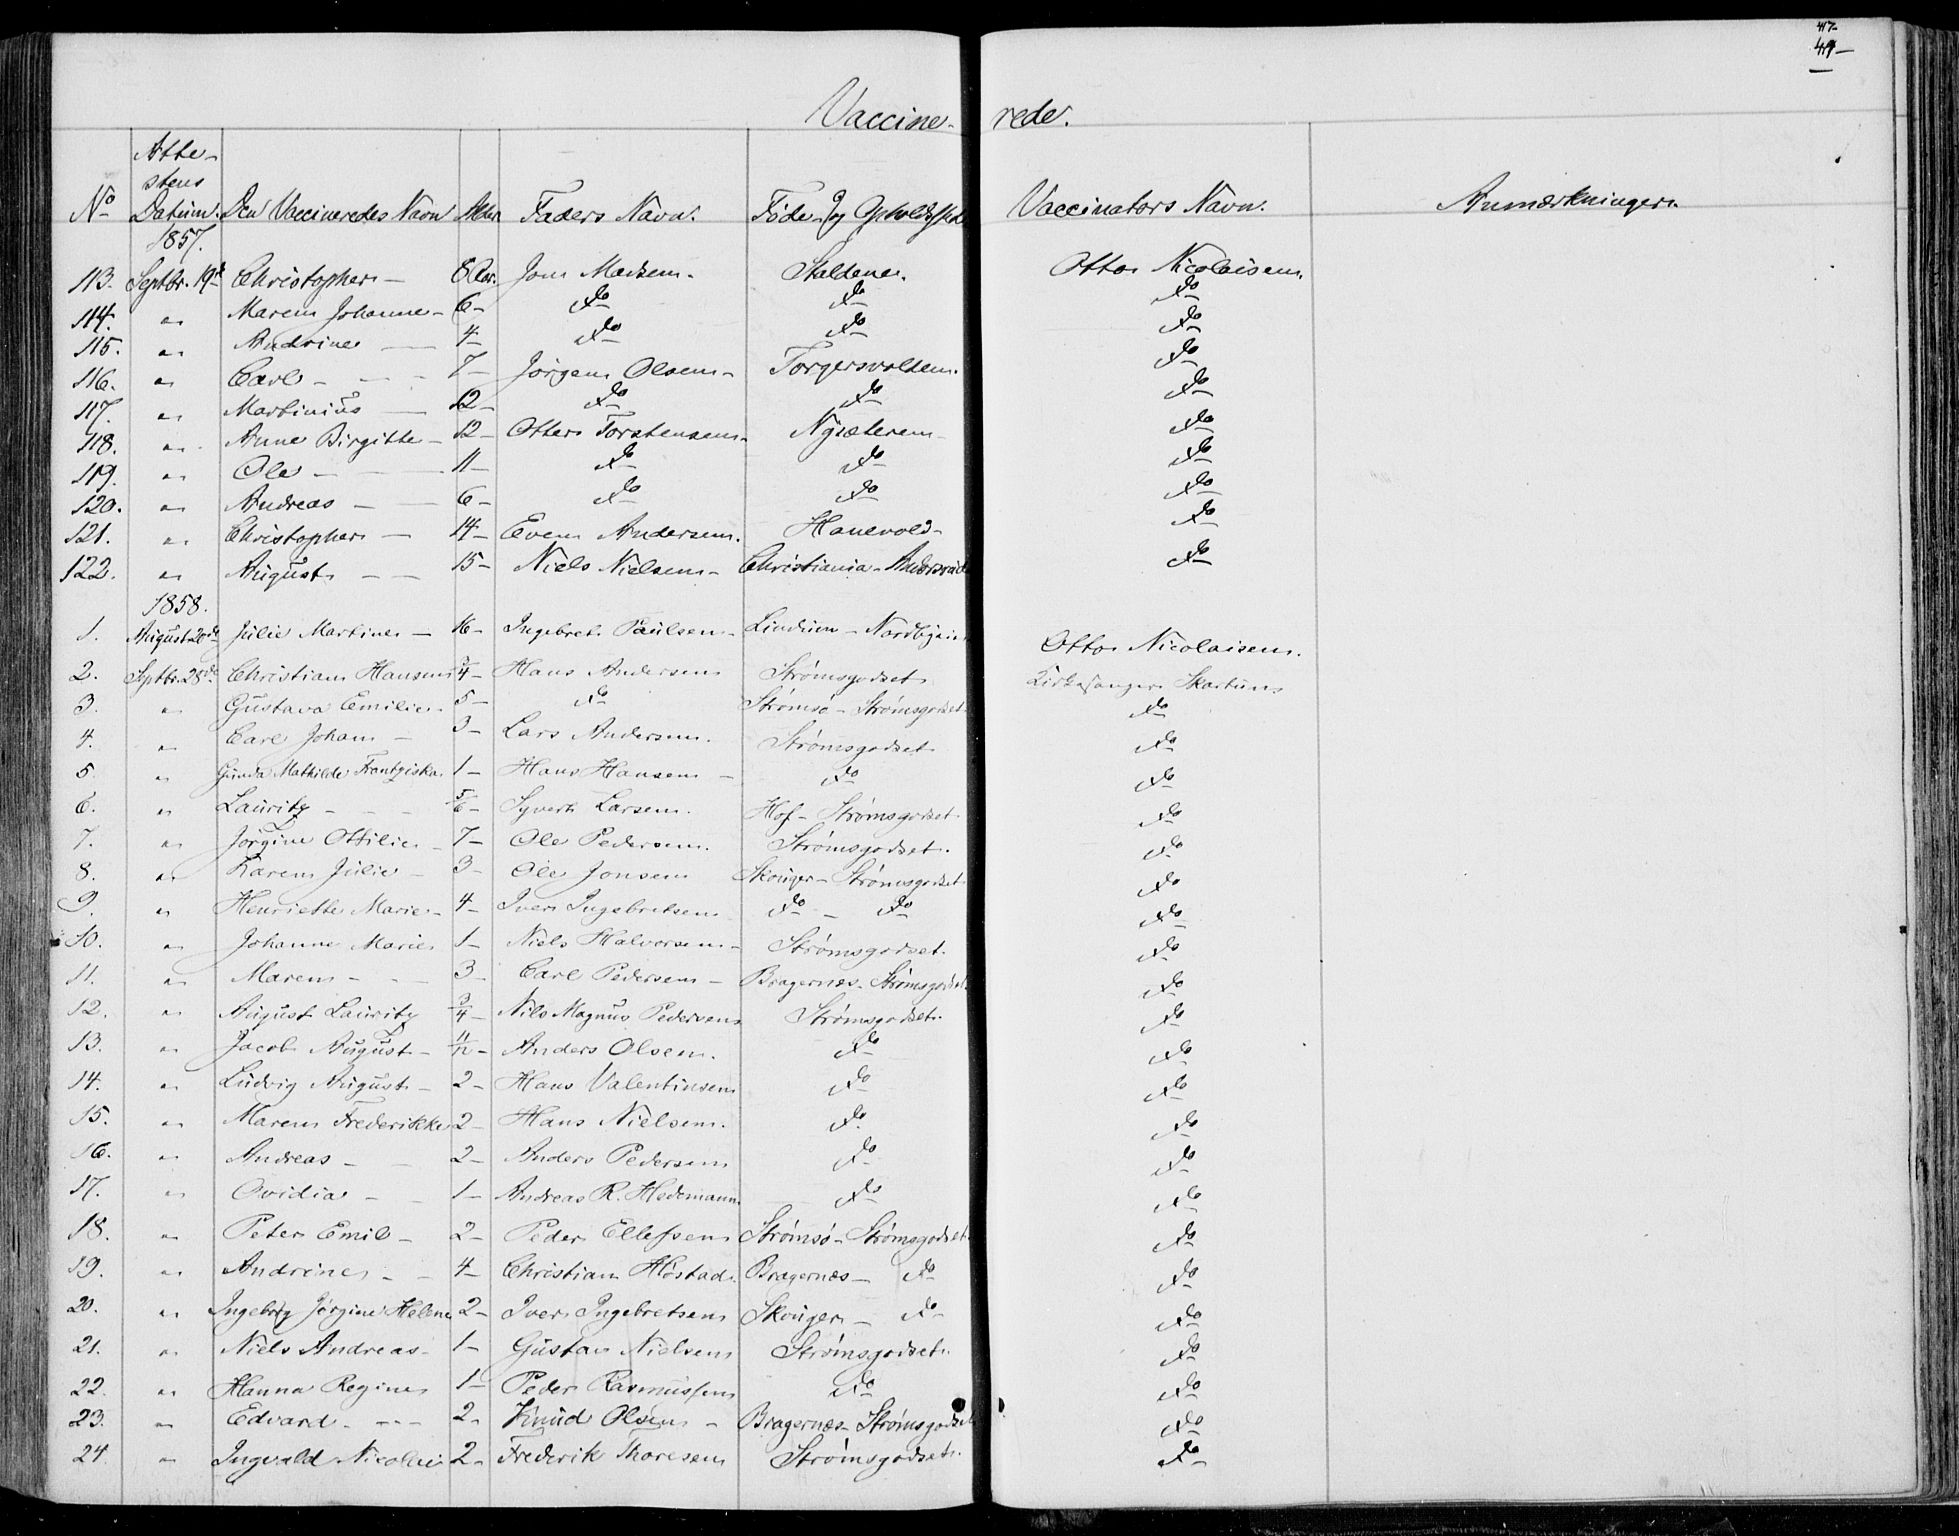 47-
49-
Vaccine- rede.
No Attestens Datum. Den Vaccineredes Navn Alder Faders Navn. Føde- og Opholdssted Vaccinators Navn. Anmærkninger.
1857.
113. Septbr. 19d Christopher - 8 Aar. Jon Madsen. Staldene. Otto Nicolaisen.
114. " Maren Johanne - 6 - do do do
115. " Andrine - 4 - do do do
116. " Carl - 7 - Jørgen Olsen - Torgersvolden. do
117. " Martinius - 12 - do do do
118. " Anne Birgitte - 12 - Otter Torstensen. Nysæteren - do
119. " Ole - 11 - do do do
120. " Andreas - 6 - do do do
121. " Christopher - 14 - Even Andersen. Hanevold - do
122. " August - 15 - Niels Nielsen - Christiania - do
1858.
1. August 20de Julie Martine - 16 - Ingebret Paulsen - Lindum - Otto Nicolaisen.
2. Septbr. 28de Christian Hansen 3/4 - Hans Andersen Strømsgodset Kirkesanger Skartun
3. " Gustava Emilie - 5 - do Strømsø - Strømsgodset do
4. " Carl Johan - 3 - Lars Andersen. Strømsgodset do
5. " Gunda Mathilde Frantziska 1 - Hans Hansen - do do
6. " Lauritz - 5/6 - Syvert Larsen. Hof - Strømsgodset do
7. " Jørgine Ottilie - 7 - Ole Pedersen. Strømsgodset. do
8. " Karen Julie - 3 - Ole Jonsen Skouger - Strømsgodset do
9. " Henriette Marie - 4 - Iver Ingebretsen do - do do
10. " Johanne Marie 1 - Niels Halvorsen - Strømsgodset. do
11. " Maren - 3 - Carl Pedersen - Bragernæs - Strømsgodset do
12. " August Lauritz 3/4 - Nils Magnus Pedersen Strømsgodset. do
13. " Jacob August - 11/12 - Anders Olsen. do do
14. " Ludvig August - 2 - Hans Valentinsen do do
15. " Maren Frederikke 2 - Hans Nielsen. do do
16. " Andreas - 2 - Anders Pedersen do do
17. " Ovidia - 1 - Andreas R. Hedemann do do
18. " Peter Emil - 2 - Peder Ellefsen Strømsø - Strømsgodset do
19. " Andrine - 4 - Christian Høstad. Bragernæs - do do
20. " Ingeborg Jørgine Helene 2 - Iver Ingebretsen Skouger - do do
21. " Niels Andreas - 1 - Gustav Nielsen Strømsgodset. do
22. " Hanna Regine 1 - Peder Rasmussen do do
23. " Edvard - 2 - Knud Olsen - Bragernæs - Strømsgodset do
24. " Ingvald Nicolai 2 - Frederik Thoresen Strømsgodset. do